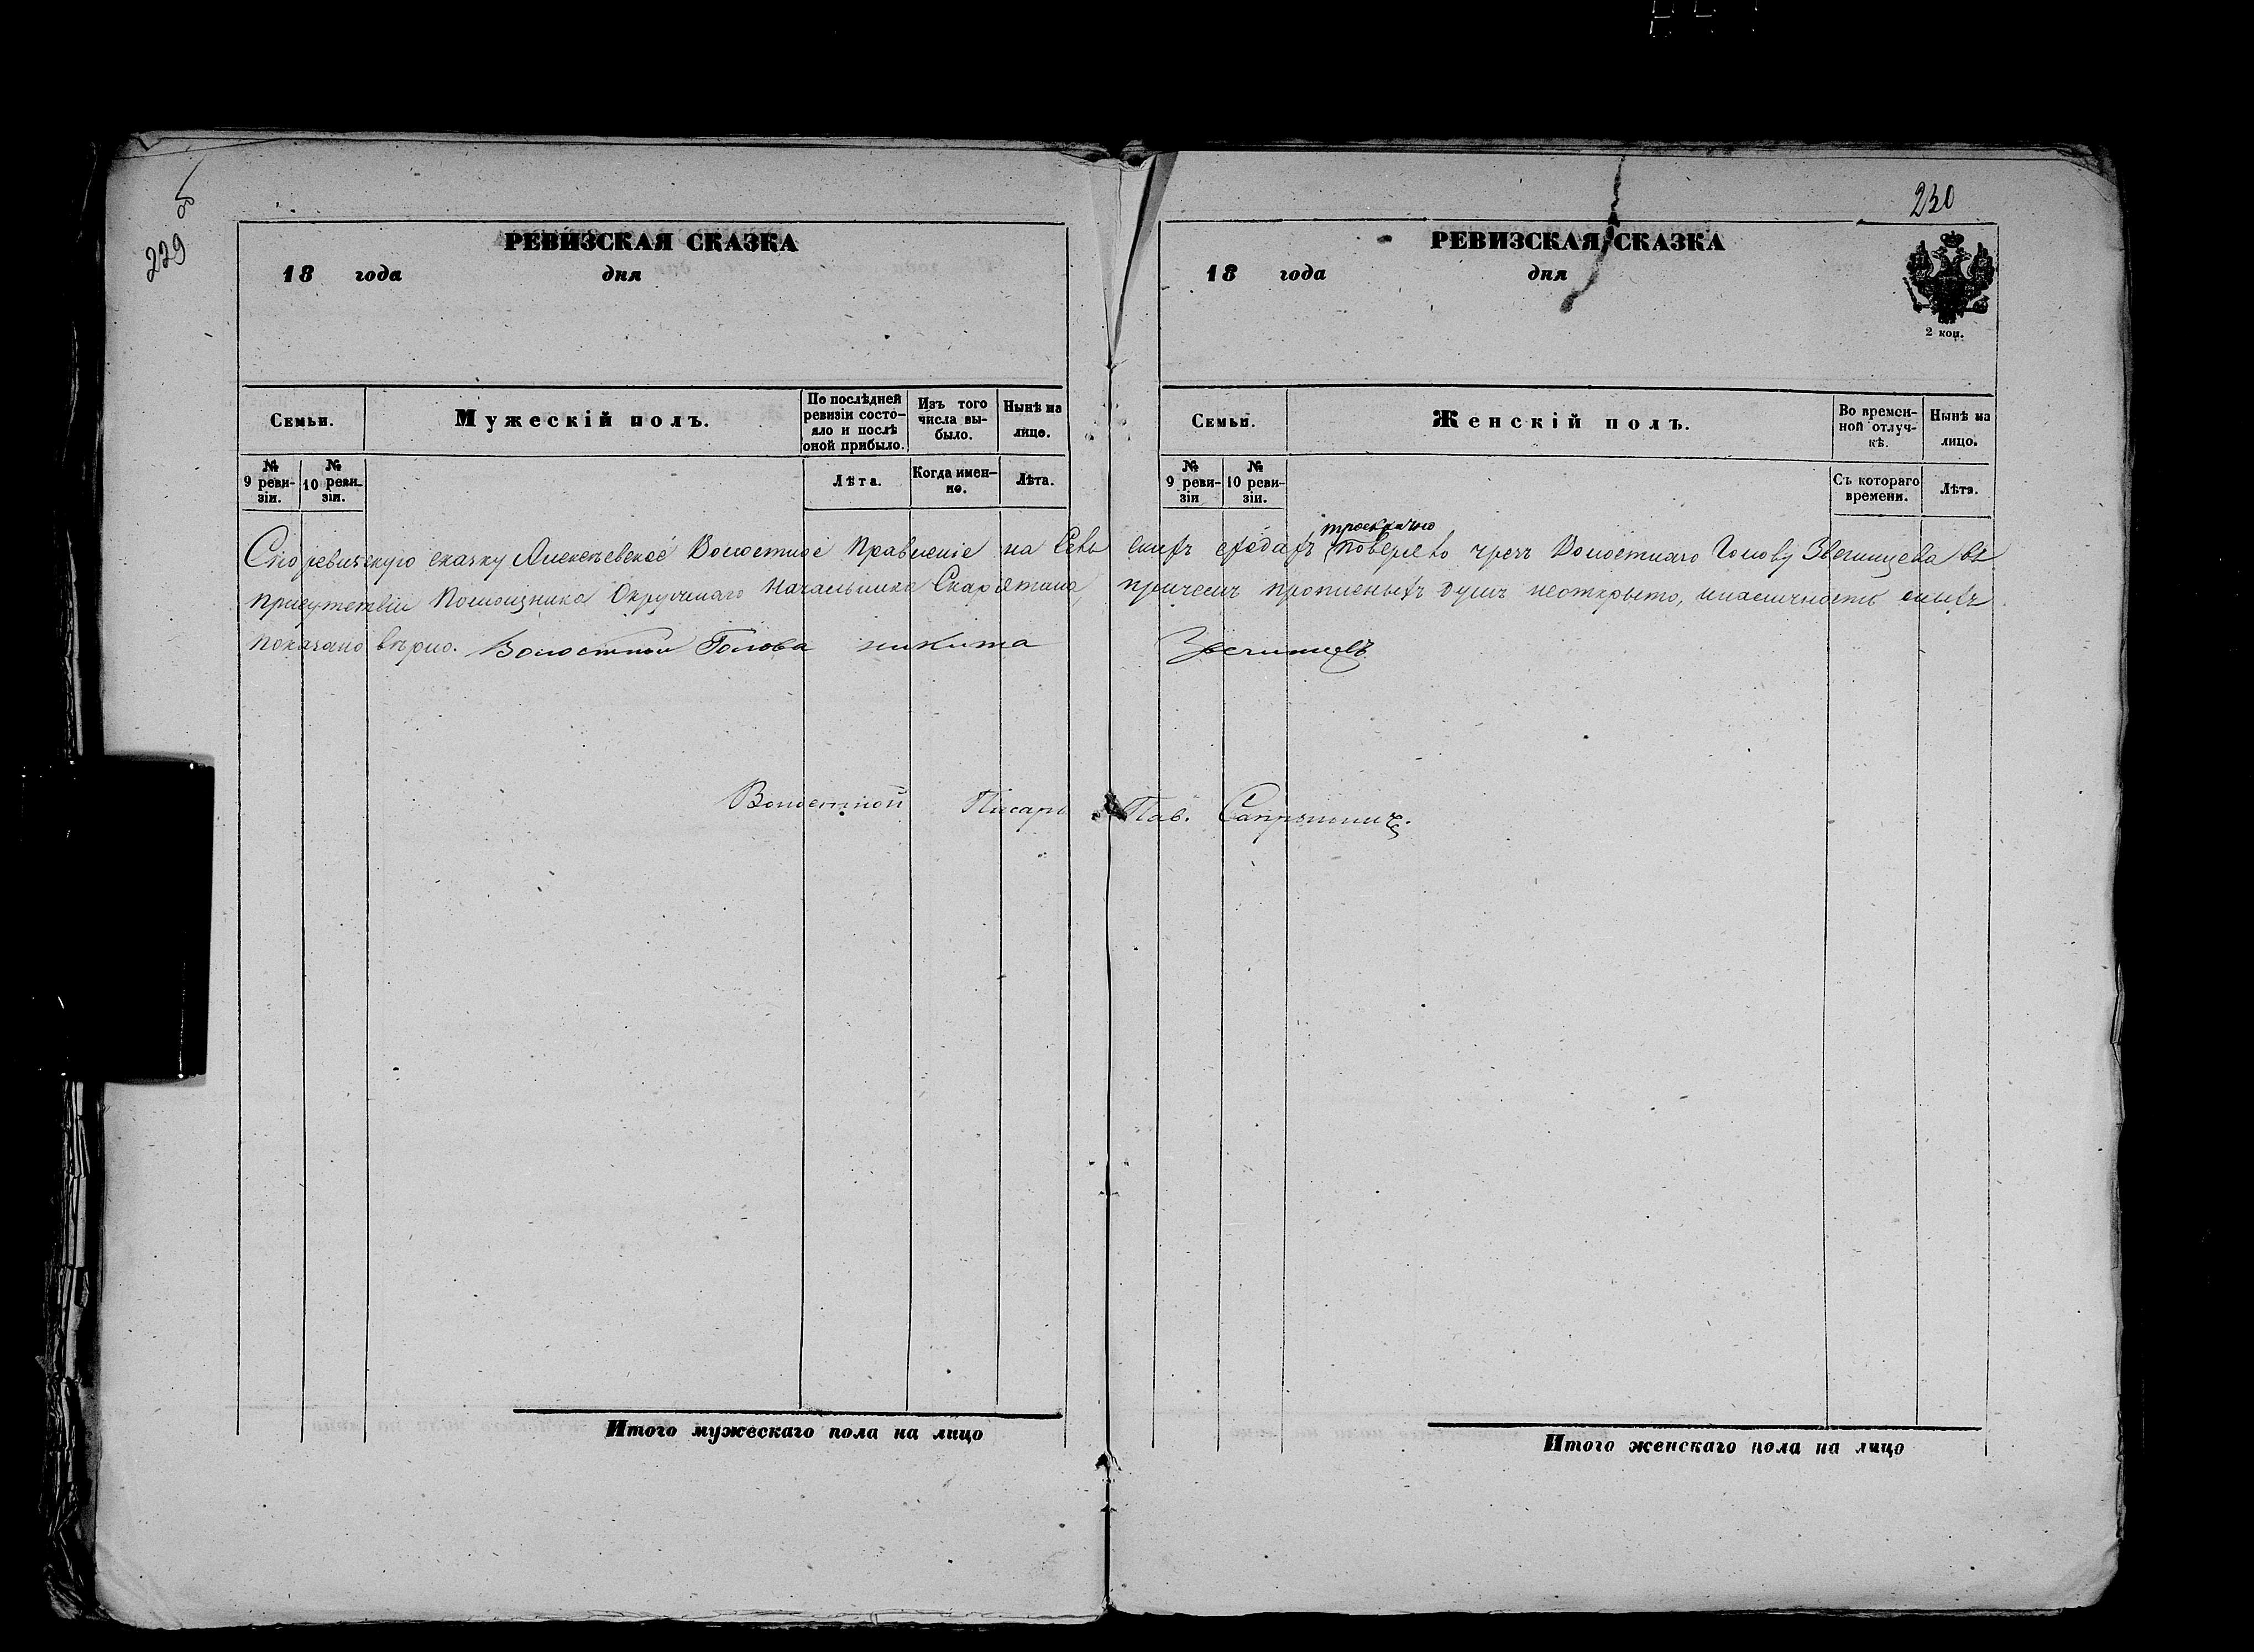 229 об
РЕВИЗСКАЯ СКАЗКА
18 года дня
Семьи.
Мужескій полъ.
По послѣдней ревизіи состояло и послѣ оной прибыло.
Изъ того числа выбыло.
Нынѣ на лицо.
№ 9 ревизіи.
№ 10 ревизіи.
Лѣта.
Когда именно.
Лѣта.
230
РЕВИЗСКАЯ СКАЗКА
18 года дня
2 коп.
Семьи.
Женскій полъ.
Во временной отлучкѣ.
Нынѣ на лицо.
№ 9 ревизіи
№ 10 ревизіи.
Съ котораго времени.
Лѣта.
троекрачно
Сію ревизскую сказку Алексѣевское Волостное Правленіе на Сель скихъ сходахъ повѣрело чрезъ Волостнаго Голову Звегинцева въ
присутствіи Помощника Окружнаго Начальника Скарятина, причемъ прописныхъ душъ неоткрыто, иналичность оныхъ
показано вѣрно. Волостной Голова никита Звегинцевъ
Волостной Писарь Пав. Сапрыкинъ.
Итого мужескаго пола на лицо
Итого женскаго пола на лицо